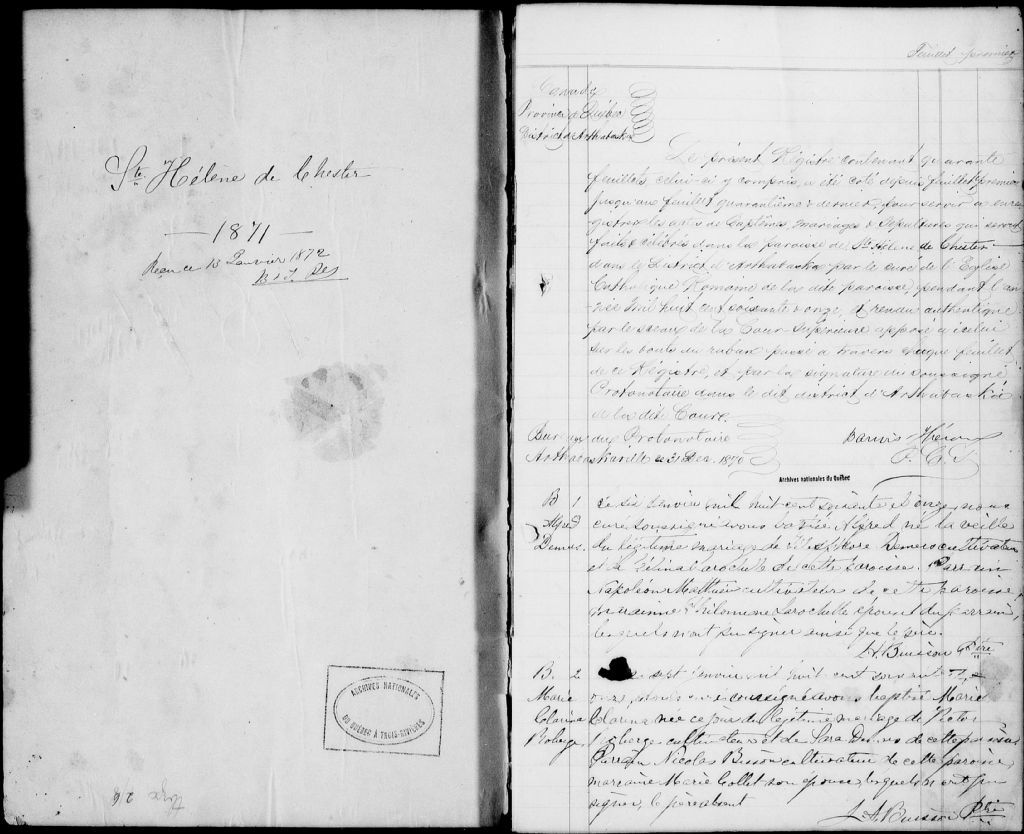 Ste Hélène de Chester
— 1871 —
Reçu ce 13 Janvier 1872
ARCHIVES NATIONALES
DU QUÉBEC À TROIS-RIVIÈRES
Feuillet premier
Canada
Province de Québec
District d'Arthabaska
Le présent Régistre contenant quarante
feuillets, celui-ci y compris, a été coté depuis feuillet premier
jusqu'au feuillet quarantième & dernier, pour servir à enre
gistrer les actes de Baptêmes, mariages & Sépultures qui seront
faits & célébrés dans la paroisse de Ste Hélène de Chester
dans le District d'Arthabaska par le curé de l'Eglise
Catholique Romaine de la dite paroisse, pendant l'an
née mil huit cent soixante & onze, et rendu authentique
par le sceau de la Cour Supérieure apposé à icelui
sur les bouts du ruban passé à travers chaque feuillet
de ce Régistre, et par la signature du soussigné
Protonotaire dans le dit district d'Arthabaska
de la dite Cour.
Bureau du Protonotaire
Arthabaskaville ce 31 Dec. 1870
P. C. S.
Archives nationales du Québec
B 1
Alfred
Demers
Ce six Janvier mil huit cent soixante et onze, nous
curé soussigné avons baptisé Alfred, né la veille
du légitime mariage de Demers cultivateur
et de Larochelle de cette paroisse. Parrain
Napoléon cultivateur de cette paroisse,
marraine Philomene Larochelle épouse du parrain,
lesquels n'ont pu signer ainsi que le père.
L. A. Buisson Ptre
B. 2
Marie
Clarina
Roberge
Ce sept Janvier mil huit cent soixante et
onze, nous curé soussigné avons baptisé Marie
Clarina née ce jour du légitime mariage de
Roberge cultivateur et de Sara Demers de cette paroisse
Parrain Nicolas cultivateur de cette paroisse,
marraine Marie Collet son épouse, lesquels n'ont pu
signer, le père absent
L. A. Buisson Ptre